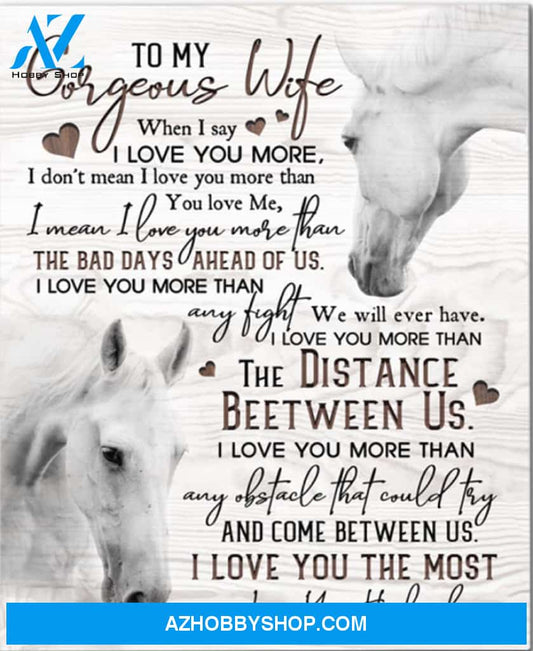 AZ
HOBBY SHOP
TO MY
Gorgeous Wife
When I say
I LOVE YOU MORE,
I don't mean I love you more than
You love Me,
I mean I love you more than
THE BAD DAYS AHEAD OF US.
I LOVE YOU MORE THAN
any fight We will ever have.
I LOVE YOU MORE THAN
THE DISTANCE
BEETWEEN US.
I LOVE YOU MORE THAN
any obstacle that could try
AND COME BETWEEN US.
I LOVE YOU THE MOST
AZHOBBYSHOP.COM